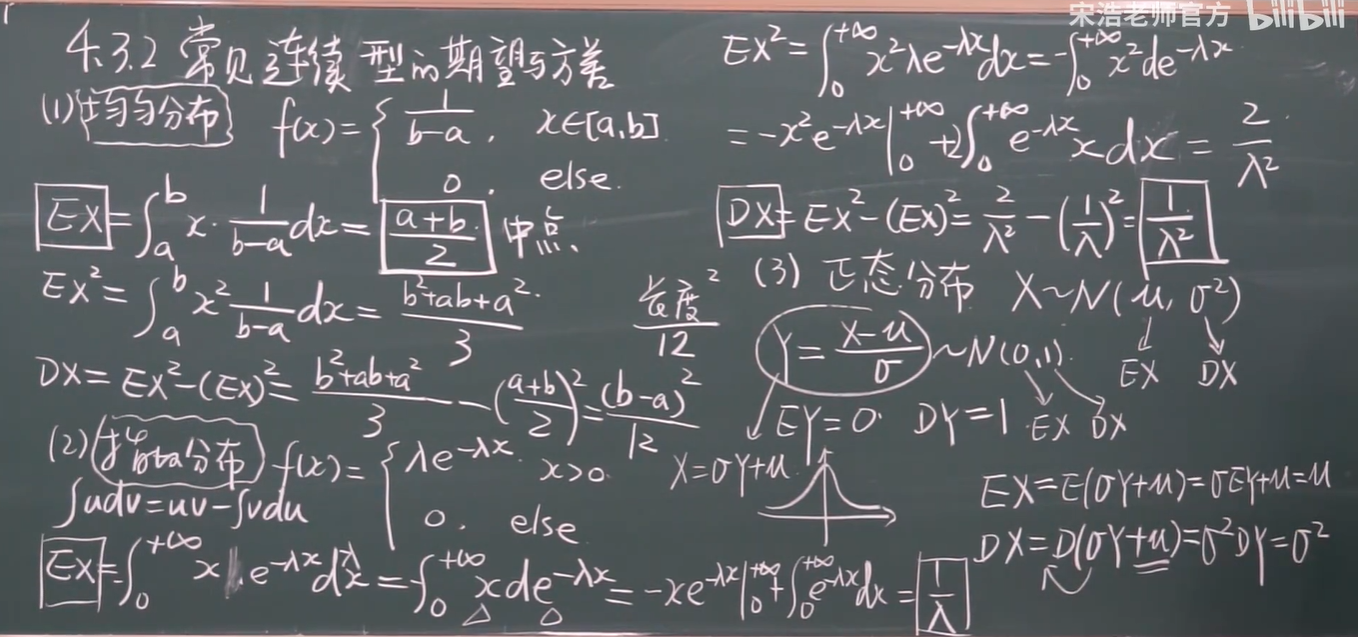 宋浩老师官方 bilibili
4.3.2 常见连续型的期望与方差
(1) 均匀分布 f(x)={ 1/(b-a), x∈[a,b]
0, else.
EX=∫_a^b x·1/(b-a) dx= (a+b)/2 中点
EX²=∫_a^b x² 1/(b-a) dx= (b²+ab+a²)/3
长度²/12
DX=EX²-(EX)²= (b²+ab+a²)/3 -((a+b)/2)²=(b-a)²/12
(2) 分布 f(x)={ λe^{-λx}, x>0
0, else
∫udv=uv-∫vdu
EX=∫_0^{+∞} x e^{-λx}dλx=-∫_0^{+∞} xde^{-λx}=-xe^{-λx}|_0^{+∞}+∫_0^{+∞}e^{-λx}dx=1/λ
EX²=∫_0^{+∞} x²λe^{-λx}dx=-∫_0^{+∞} x²de^{-λx}
=-x²e^{-λx}|_0^{+∞}+2∫_0^{+∞} e^{-λx}xdx= 2/λ²
DX=EX²-(EX)²= 2/λ² -(1/λ)²= 1/λ²
(3) 正态分布 X~N(μ, σ²)
EX DX
Y=(X-μ)/σ ~N(0,1)
EX DX
EY=0 DY=1
X=σY+μ
EX=E(σY+μ)=σEY+μ=μ
DX=D(σY+μ)=σ²DY=σ²